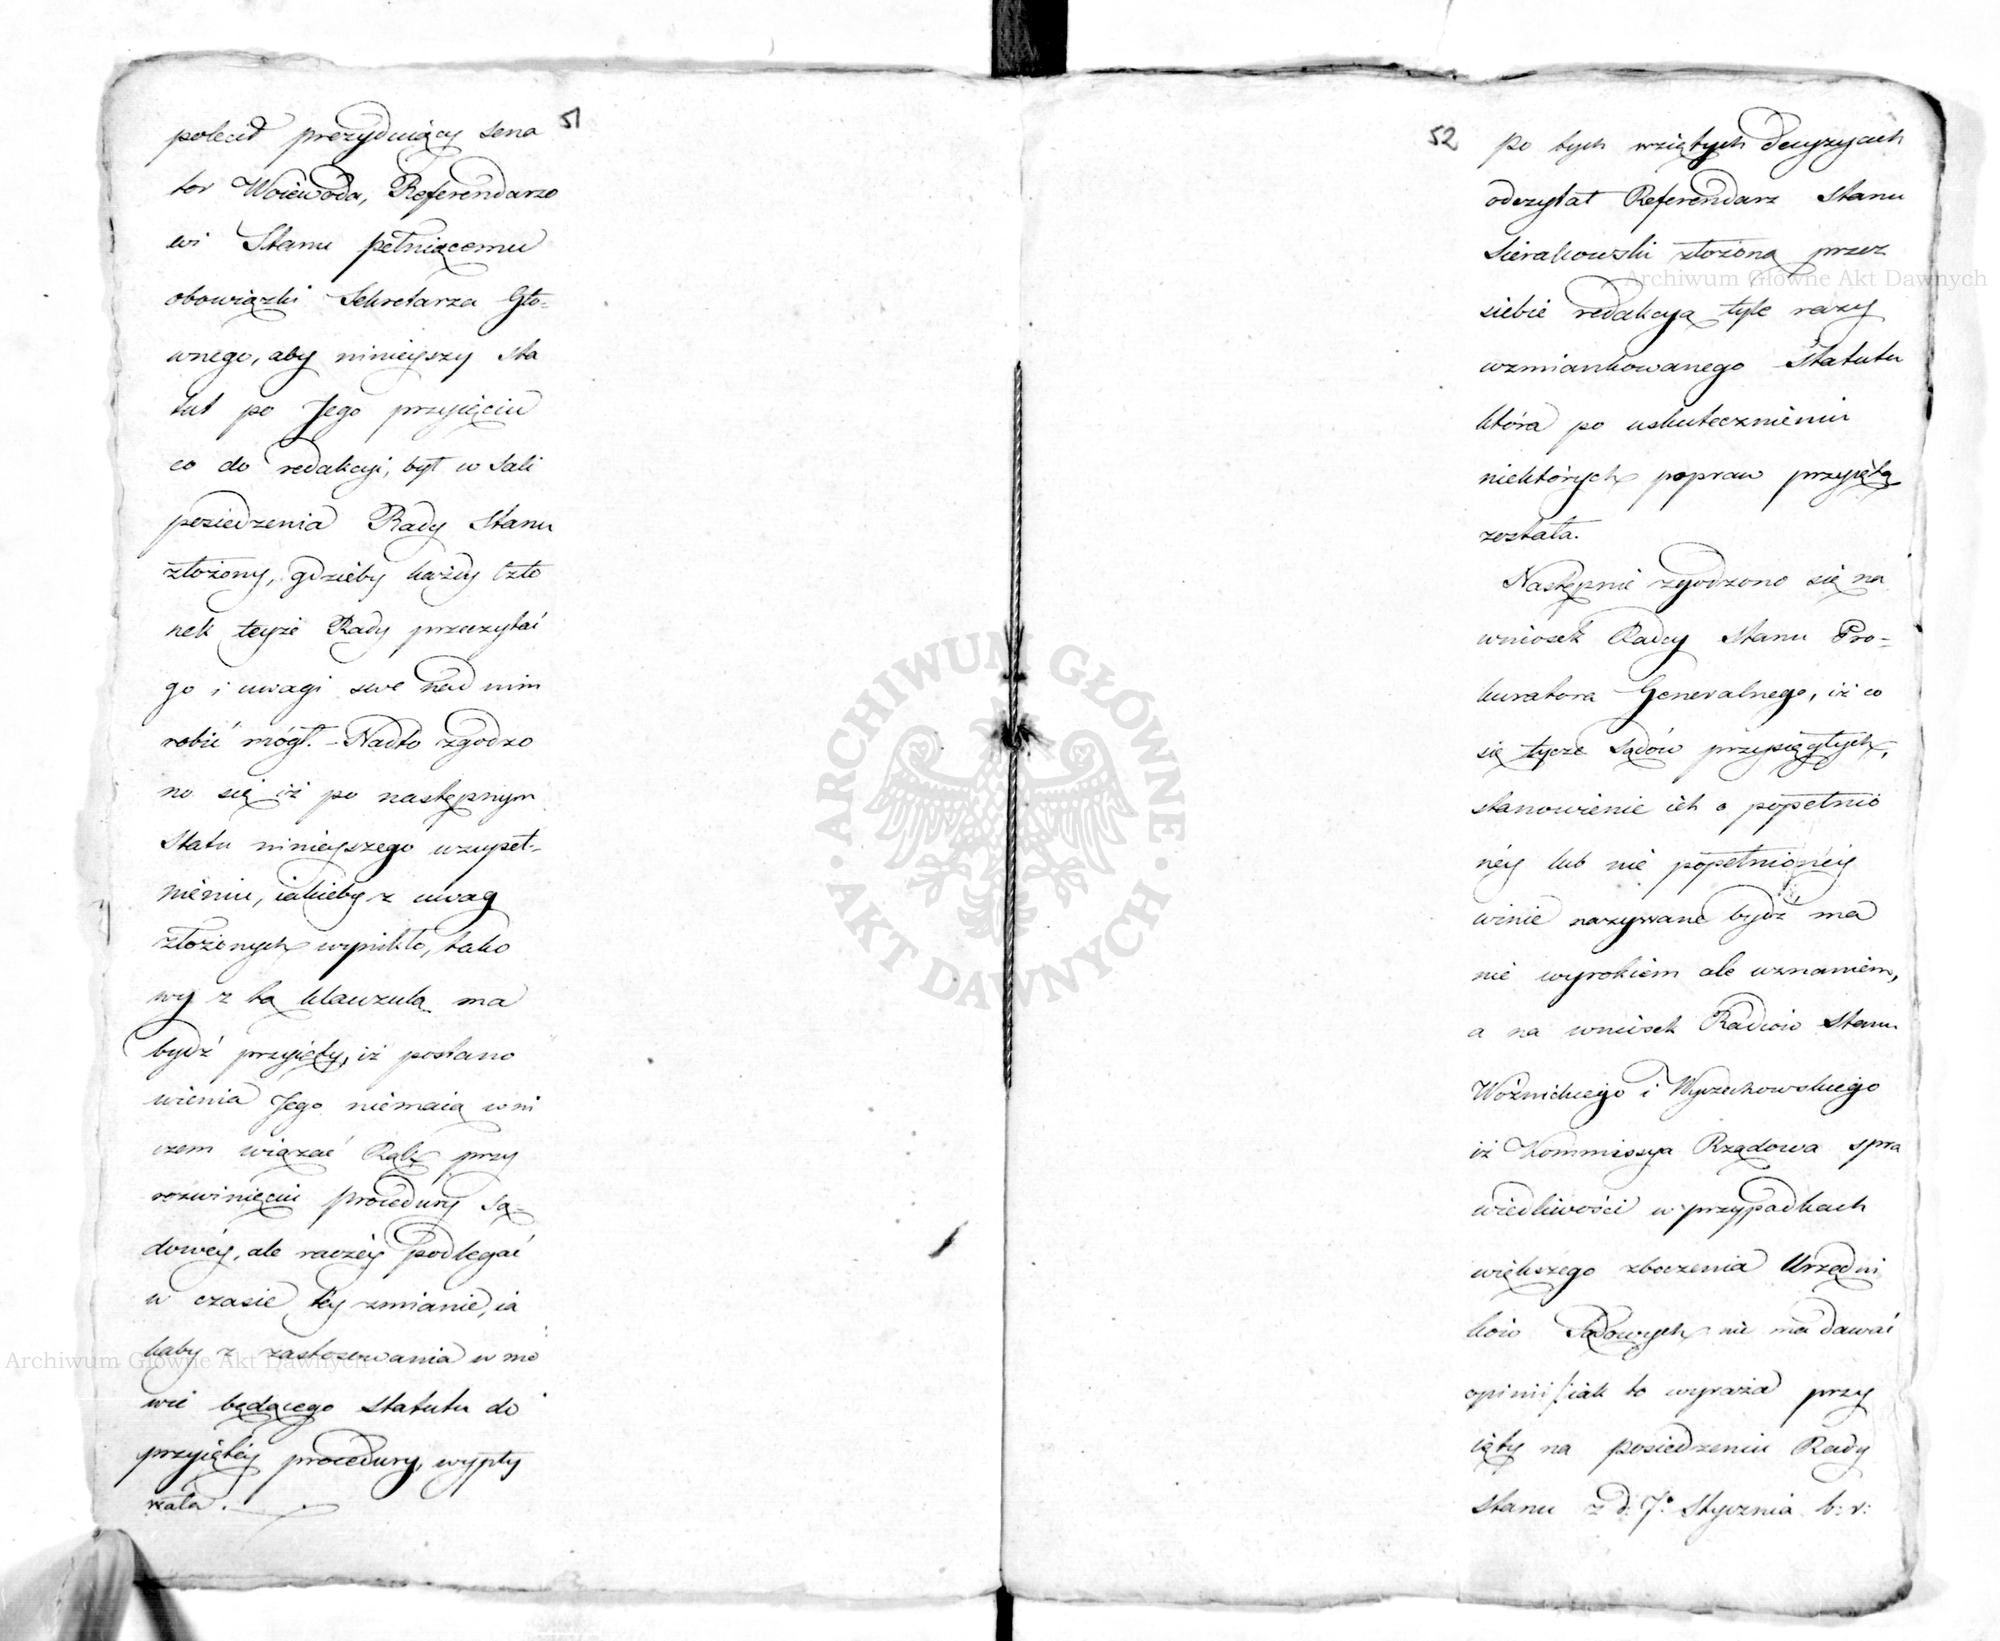 51
polecił prezyduiący Sena
tor Woiewoda, Referendarzo
wi Stanu pełniącemu
obowiązki Sekretarza Głó-
wnego, aby ninieyszy Sta
tut po Jego przyięciu
co do redakcyi, był w Sali
posiedzenia Rady Stanu
złożony, gdzieby każdy Czło
nek teyże Rady przeczytać
go i uwagi swe nad nim
robić mógł. - Nadto zgodzo
no się iż po następnym
Statu ninieyszego uzupeł-
nieniu, iakieby z uwag
złożonych wynikło, tako
wy z tą klauzulą ma
bydź przyięty, iż postano
wienia Jego niemaią w ni
czem wiązać Rąk przy
rozwinięciu procedury Są-
dowéy, ale raczéy podlegać
w czasie téy zmianie, ia
kaby z zastosowania w mo
wie będącego Statutu do
przyiętéy procedury, wypły
wała.
52
po tych wziętych decyzyach
odczytał Referendarz Stanu
Sierakowski złożoną przez
siebie redakcyą tyle razy
wzmiankowanego Statutu
która po uskutecznieniu
niektórych popraw przyiętą
została.
Następnie zgodzono się na
wniosek Radcy Stanu Pro-
kuratora Generalnego, iż co
się tycze Sądów przysięgłych,
stanowienie ich o popełnio
néy lub nie popełnionéy
winie nazywane bydź ma
nie wyrokiem ale uznaniem,
a na wniosek Radców Stanu
Woźnickiego i Wyczechowskiego
iż Kommissya Rządowa Spra
wiedliwości w przypadkach
większego zboczenia Urzędni
ków Sądowych nie ma dawać
opinii /:iak to wyraża przy
ięty na posiedzeniu Rady
Stanu z d: 7° Stycznia b: r:
Archiwum Główne Akt Dawnych
ARCHIWUM GŁÓWNE · AKT DAWNYCH ·
Archiwum Główne Akt Dawnych